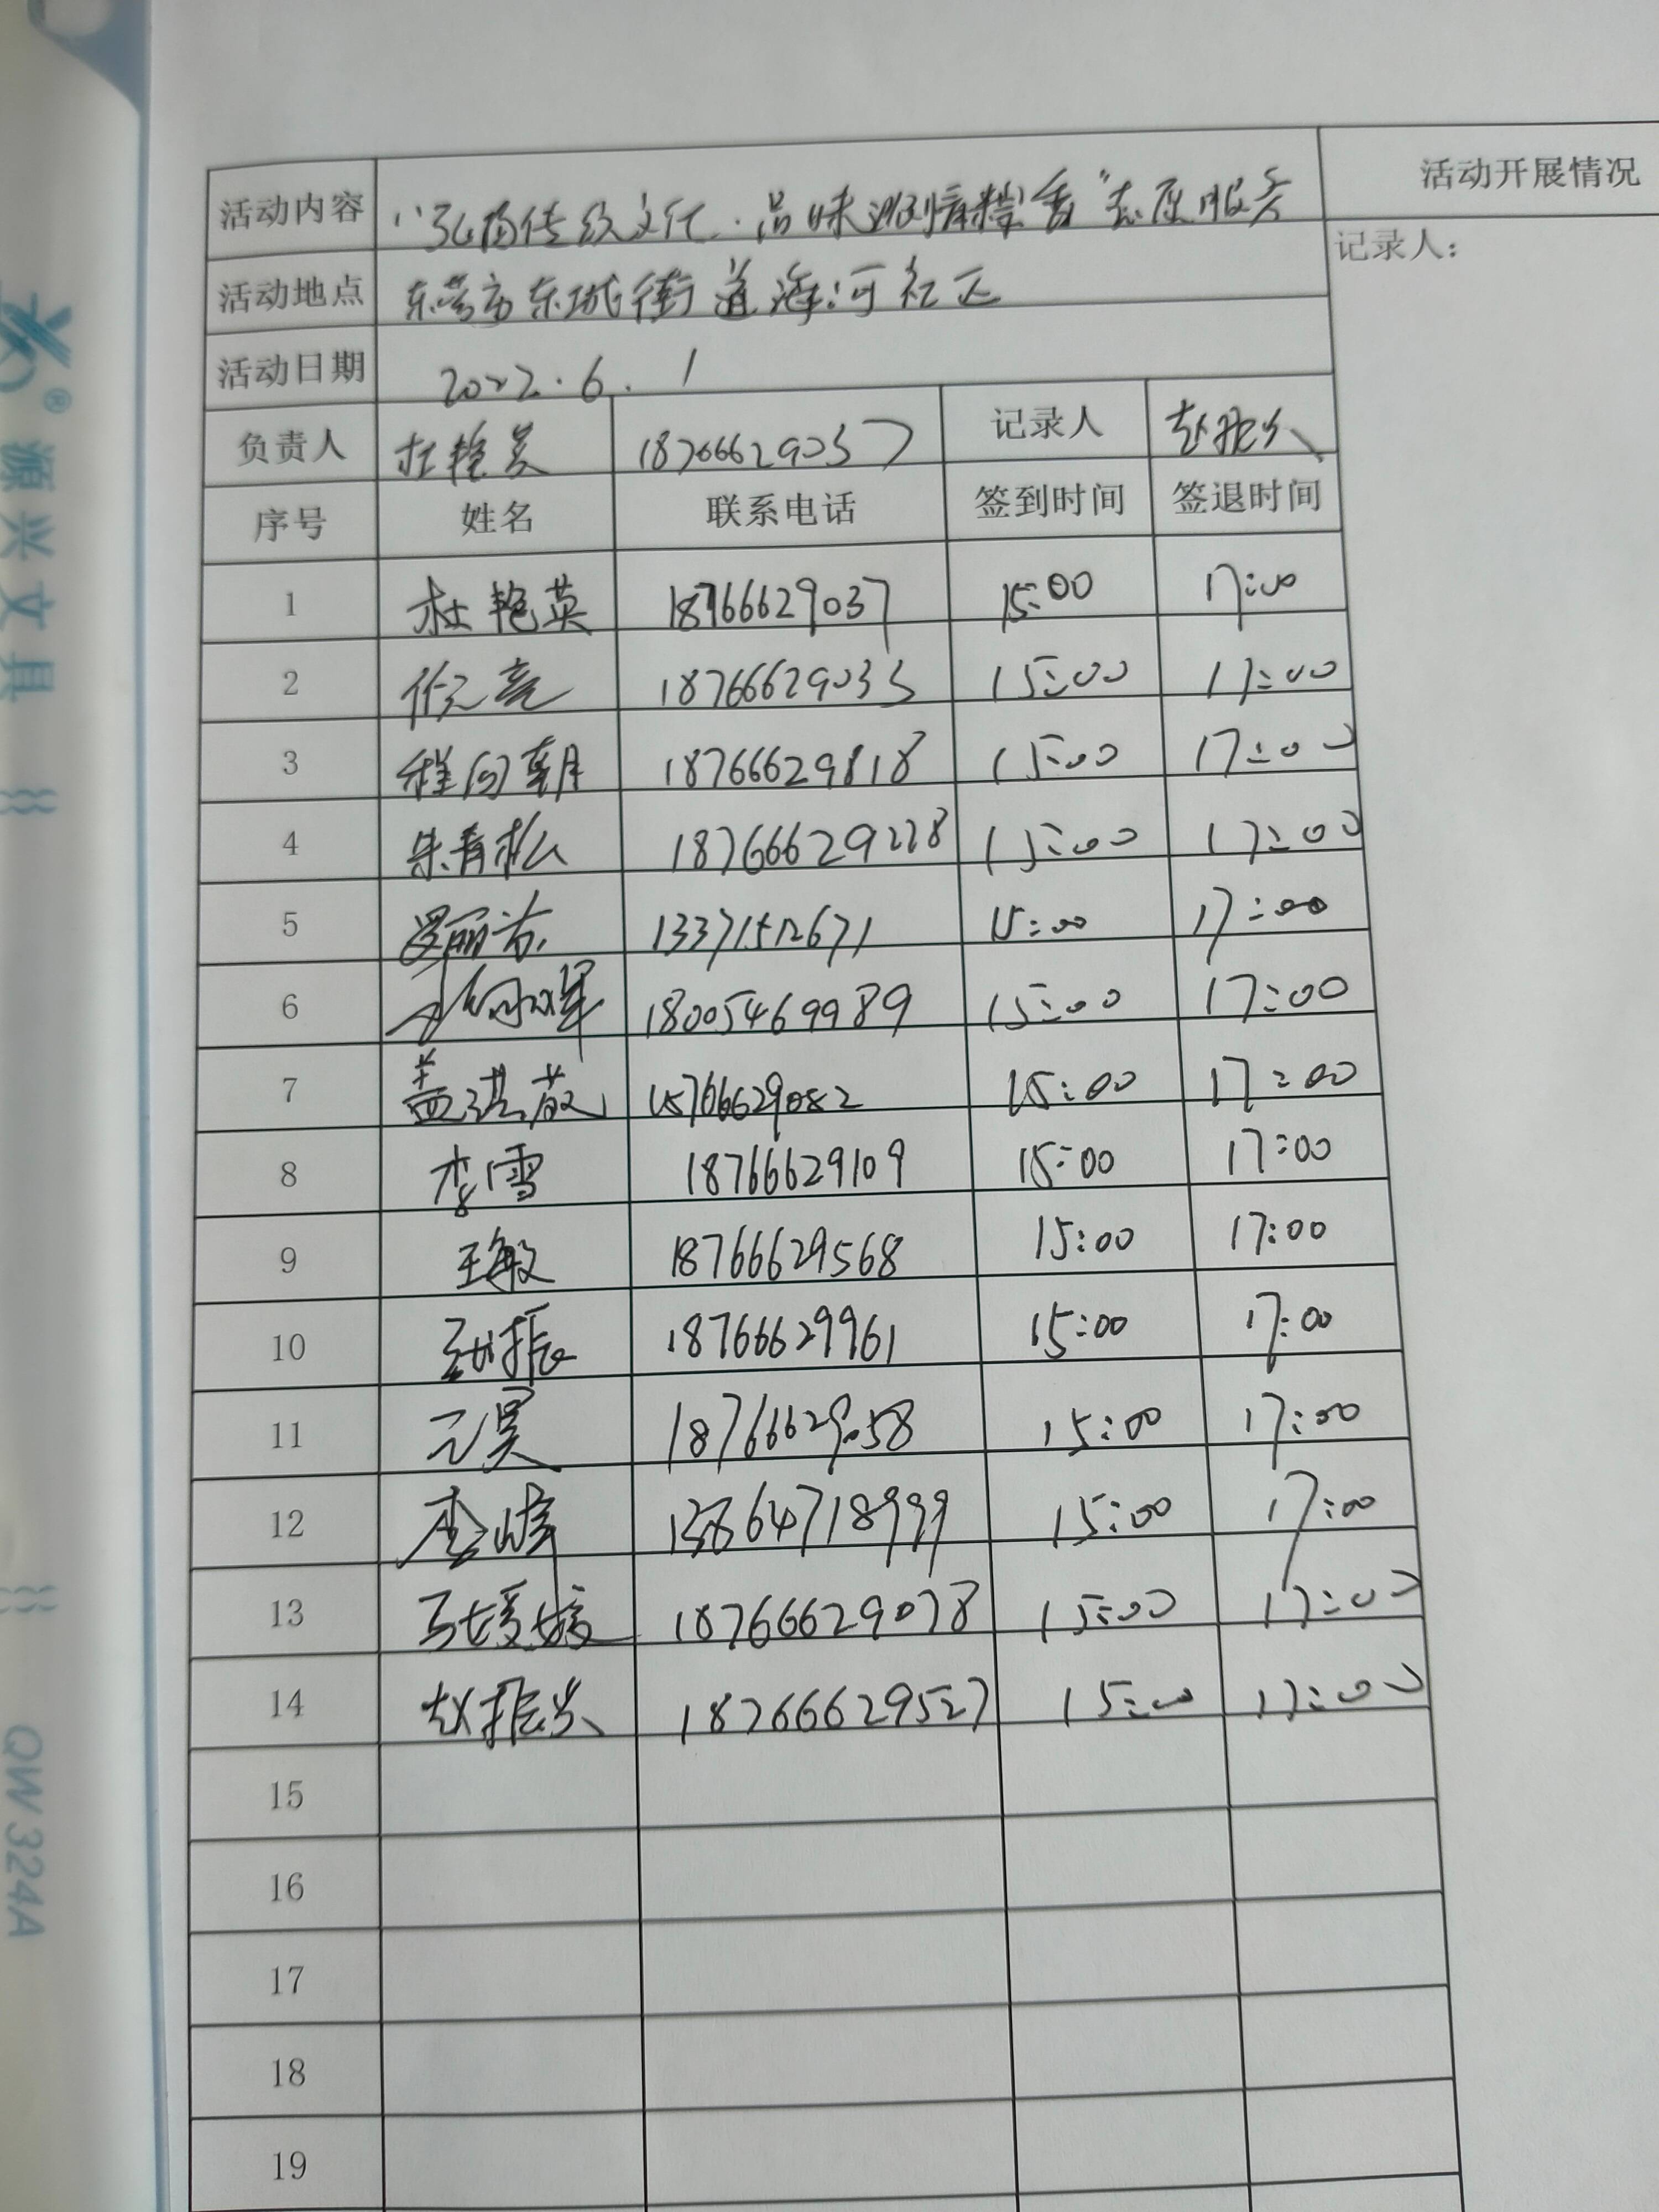 活动内容 "弘扬传统文化·品味浓情粽香"志愿服务 活动开展情况
活动地点 东营市东城街道海河社区 记录人:
活动日期 2022.6.1
负责人 杜艳英 18766629037 记录人
序号 姓名 联系电话 签到时间 签退时间
1 杜艳英 18766629037 15:00 17:00
2 18766629033 15:00 17:00
3 程向朝 18766629818 15:00 17:00
4 朱青松 18766629228 15:00 17:00
5 13371512671 15:00 17:00
6 18005469989 15:00 17:00
7 盖淇薇 18766629082 15:00 17:00
8 李雪 18766629109 15:00 17:00
9 王敏 18766629568 15:00 17:00
10 18766629961 15:00 17:00
11 18766629058 15:00 17:00
12 李峰 13864718999 15:00 17:00
13 18766629078 15:00 17:00
14 赵振兴 18766629527 15:00 17:00
15
16
17
18
19
® 源兴文具
QW324A